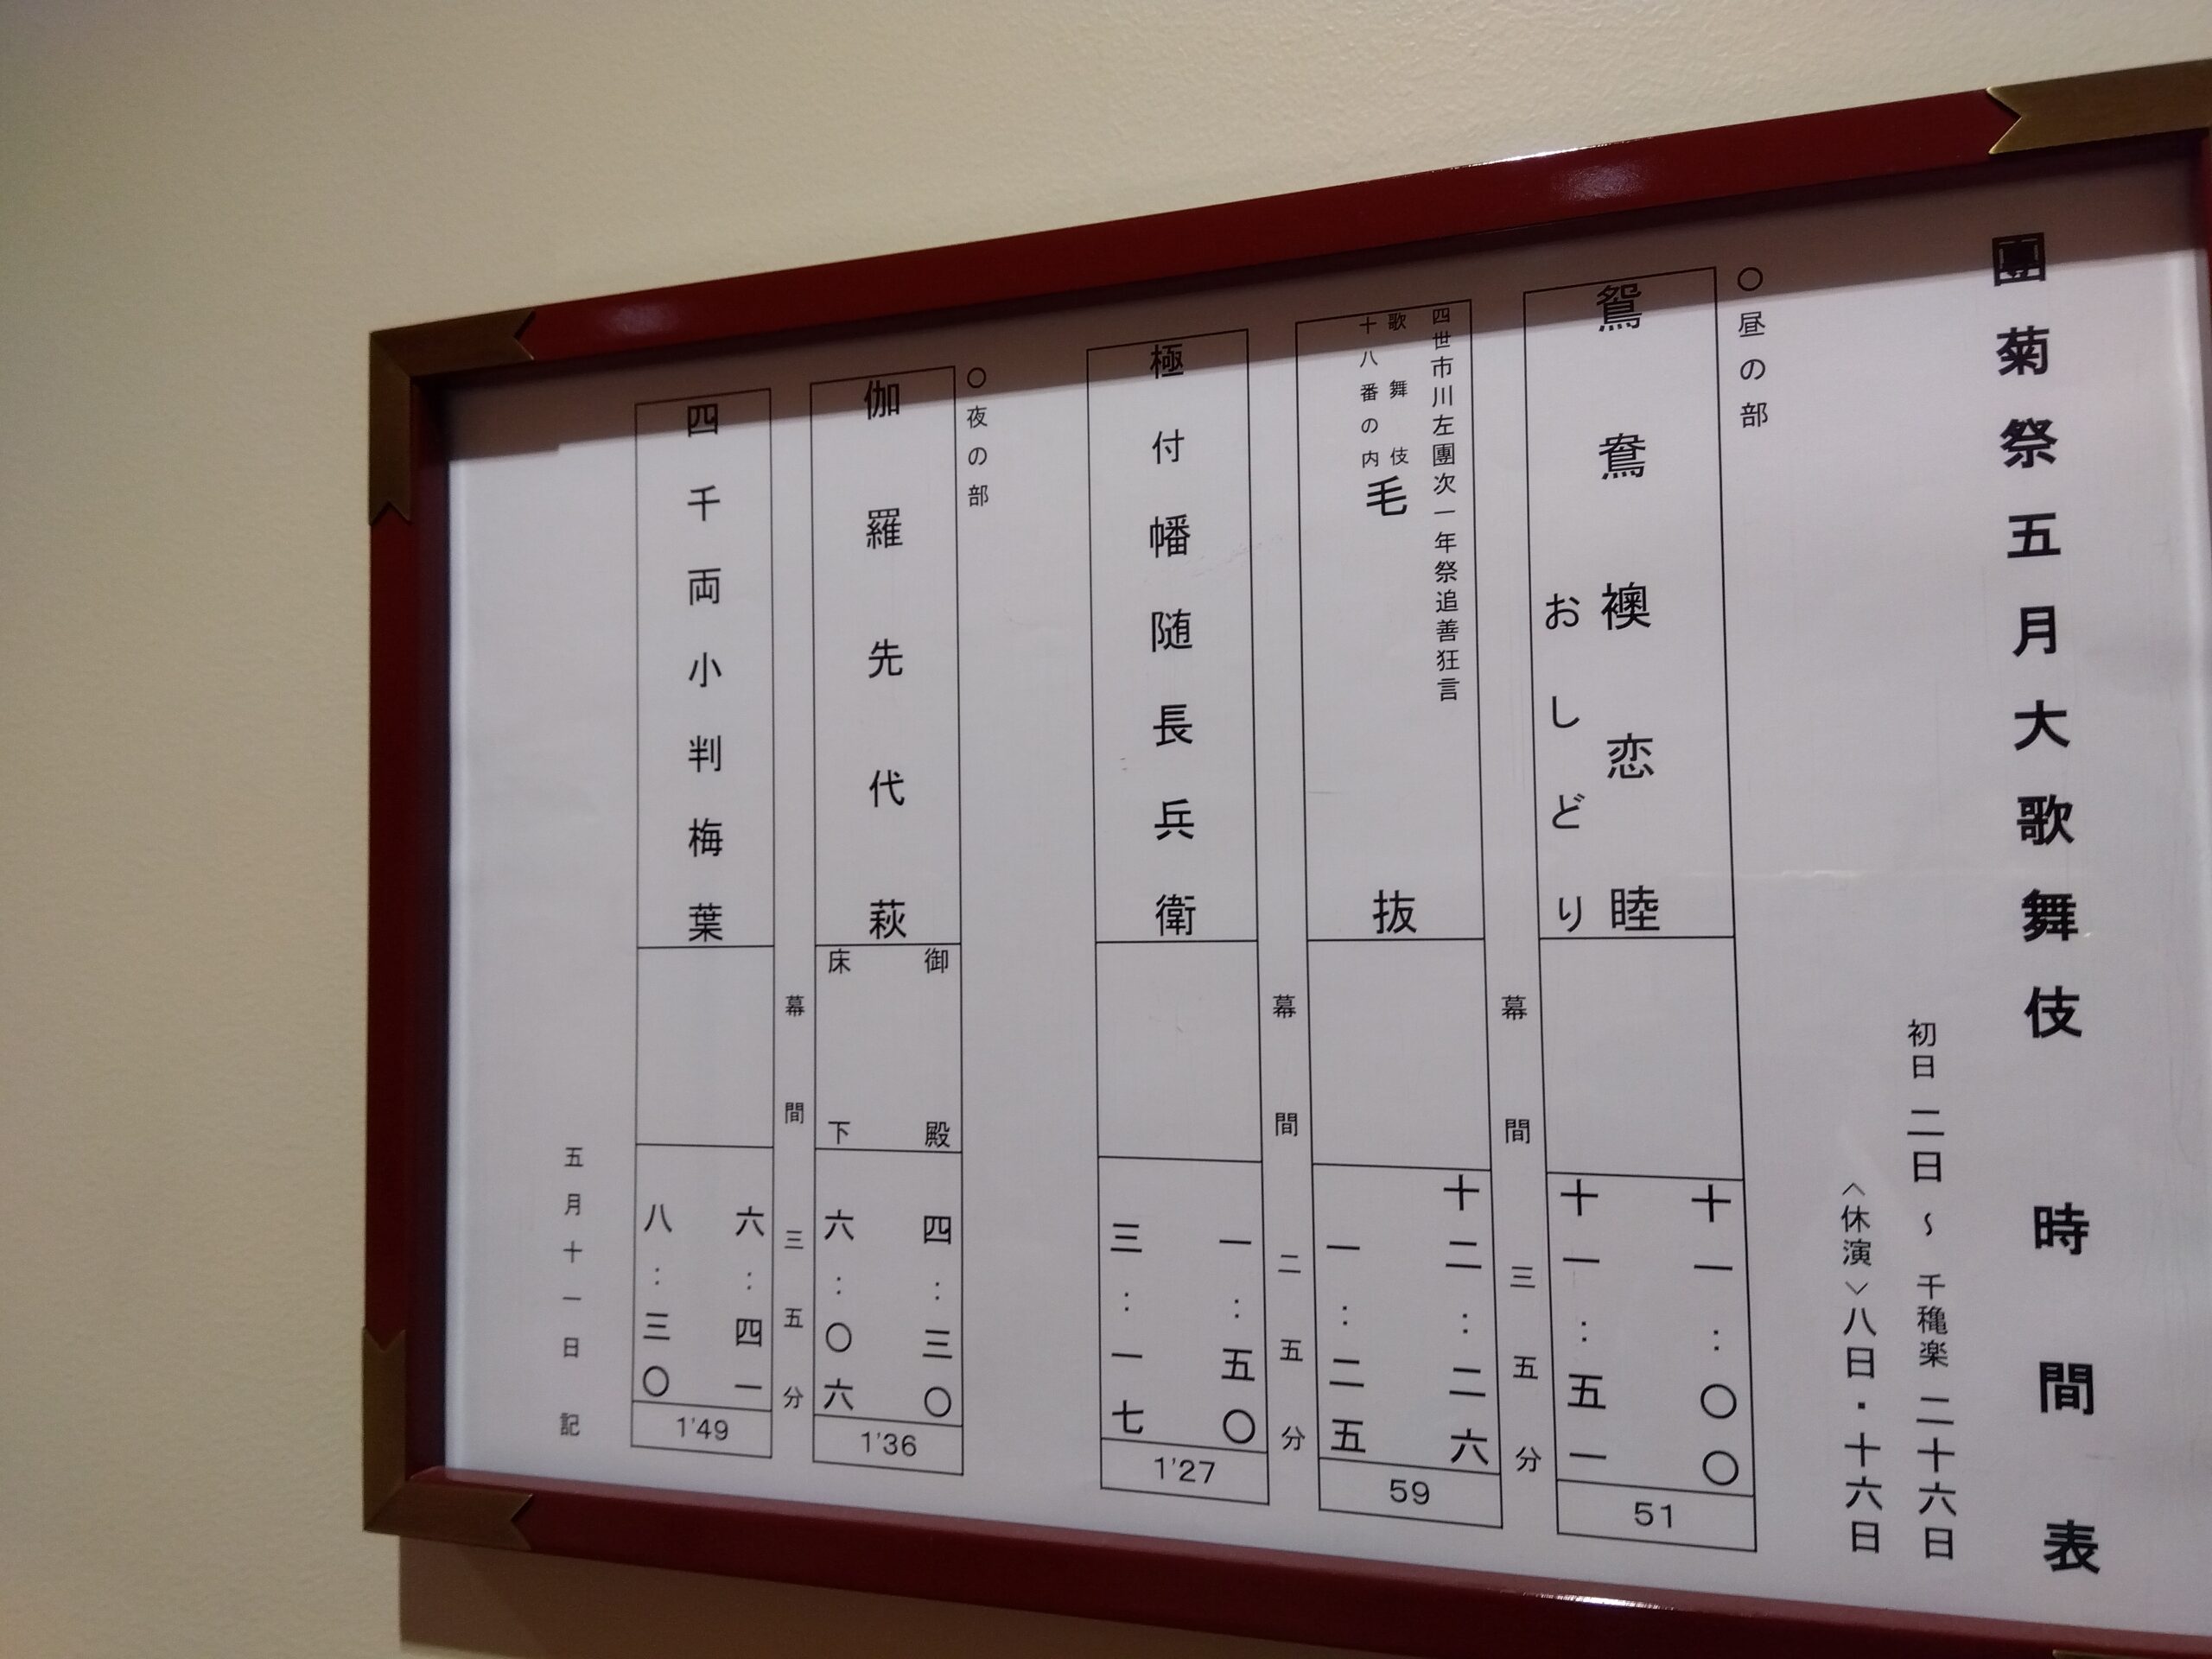 團菊祭五月大歌舞伎 時間表
初日 二日 ~ 千穐楽 二十六日
<休演>八日・十六日
○昼の部
鴛鴦襖恋睦
おしどり
十一:〇〇
十一:五一
51
幕間 三五分
四世市川左團次一年祭追善狂言
歌舞伎
十八番の内
毛抜
十二:二六
一:二五
59
幕間 二五分
極付幡随長兵衛
一:五〇
三:一七
1'27
○夜の部
伽羅先代萩
御殿
床下
四:三〇
六:〇六
1'36
幕間 三五分
四千両小判梅葉
六:四一
八:三〇
1'49
五月十一日 記